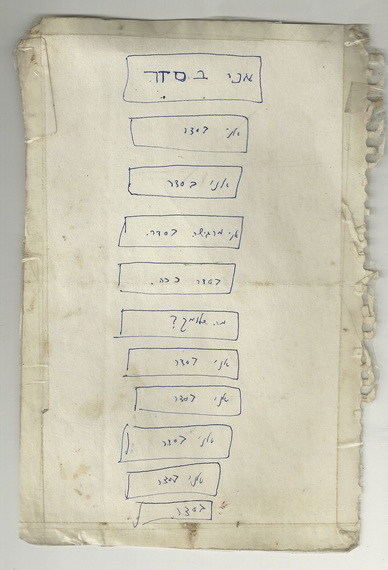 אני בסדר
אני בסדר
אני בסדר
אני מרגישה בסדר.
בסדר ככה.
אני בסדר
אני בסדר
אני בסדר
אני בסדר
בסדר